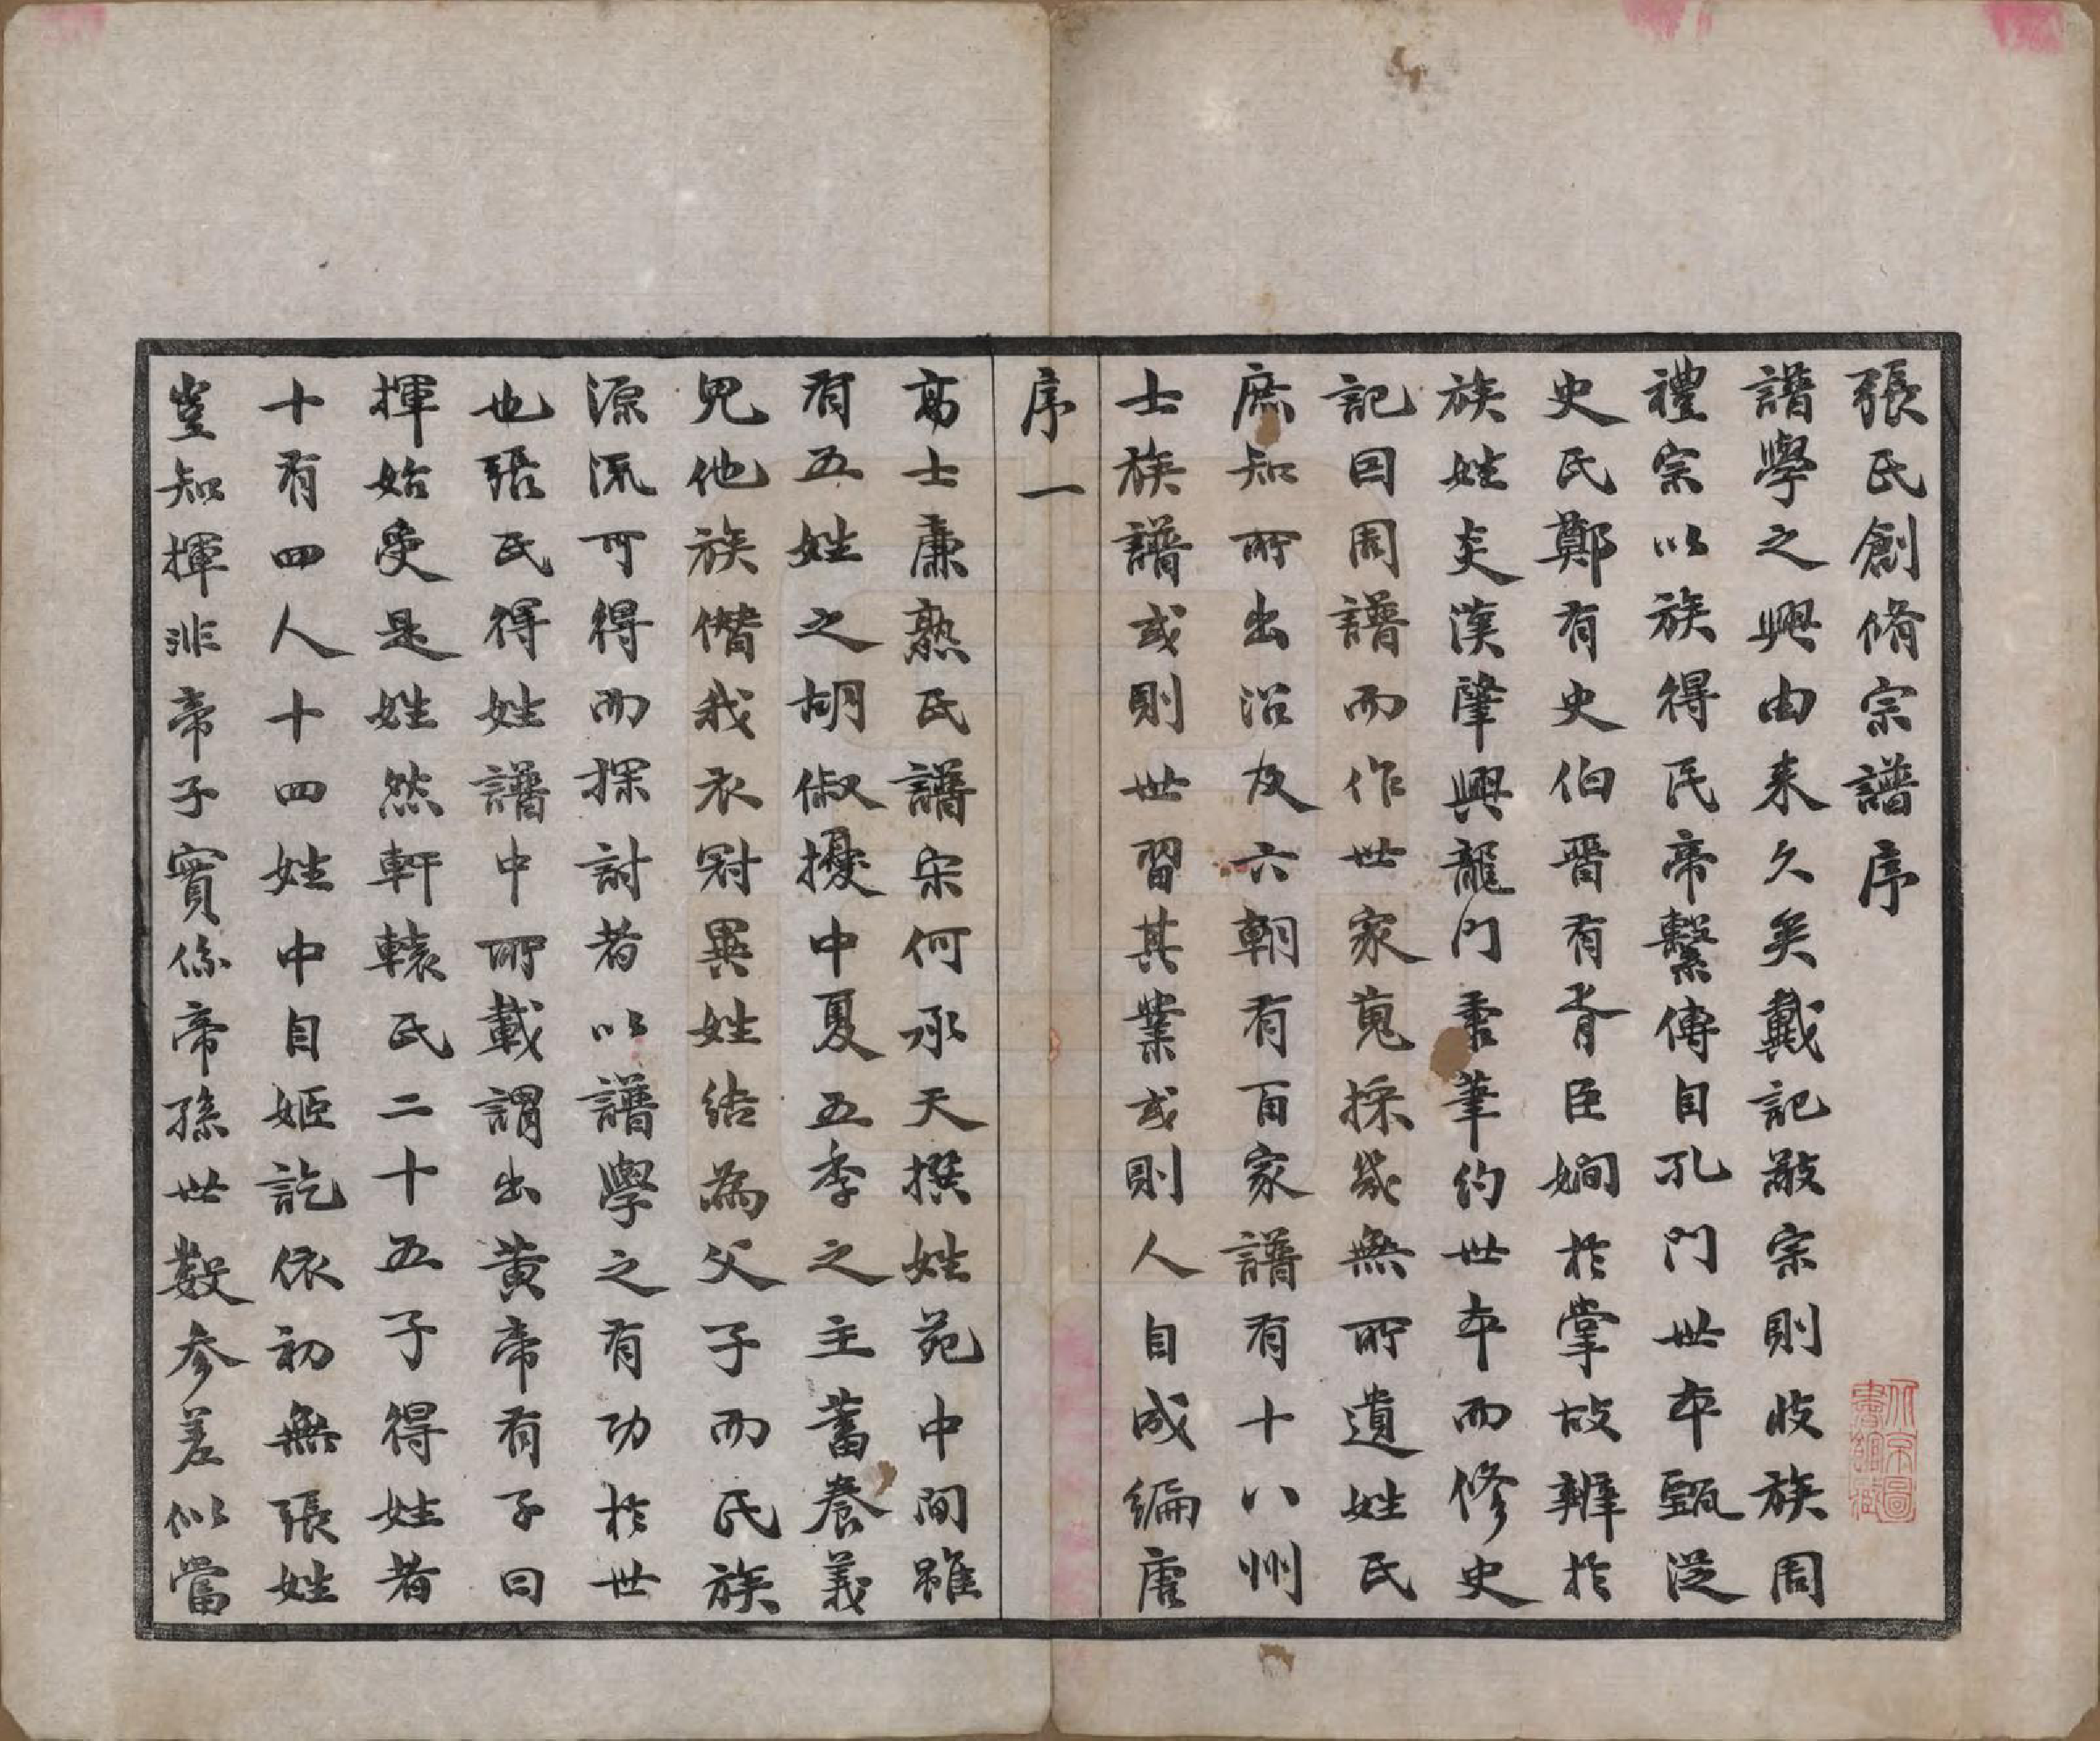 張氏創脩宗譜序
譜學之興由来久矣戴記敬宗則收族周
禮宗以族得民帝繫傳自孔門世本甄從
史氏鄭有史伯晋有胥臣嫺於掌故辨於
族姓炎漢肇興龍門秉筆約世本而修史
記因周譜而作世家蒐採幾無所遺姓氏
庶知所出沿及六朝有百家譜有十八州
士族譜或則世習其業或則人自成編唐
序一
高士廉熟氏譜宋何承天撰姓苑中間雖
有五姓之胡俶擾中夏五季之主蓄養義
兒他族僭我衣冠異姓結為父子而氏族
源流可得而探討者以譜學之有功於世
也張氏得姓譜中所載謂出黄帝有子曰
揮始受是姓然軒轅氏二十五子得姓者
十有四人十四姓中自姬訖依初無張姓
豈知揮非帝子實係帝孫世數参差似當